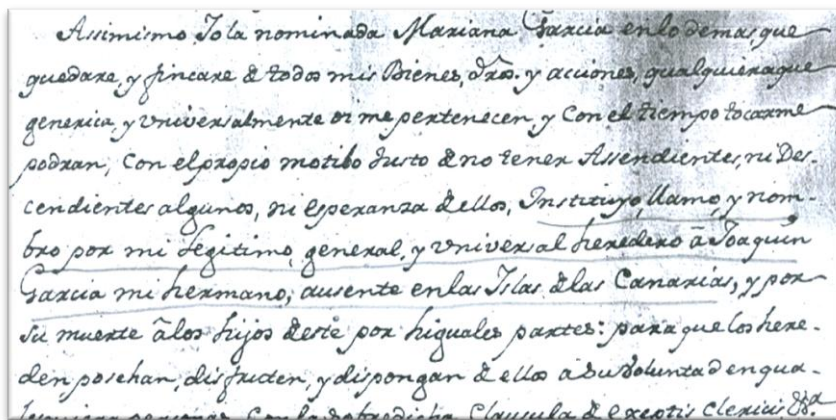 Assimismo Yo la nominada Mariana Garcia en lo demas, que
quedare, y fincare de todos mis Bienes, dros. y acciones, qualquiera que
generica, y universalmente oi me pertenecen, y Con el tiempo tocarme
podran, Con el propio motibo Justo de no tener Assendientes, ni Des-
cendientes algunos, ni esperanza de ellos, Instituyo, llamo, y nom-
bro por mi legitimo, general, y universal heredero â Joaquin
Garcia mi hermano, ausente en las Islas de las Canarias, y por
su muerte â los hijos de este por higuales partes: para que los here-
den posehan, disfruten, y dispongan de ellos a su voluntad en qua-
personas, Con la sobredicha Clausula de exeptis Clericis